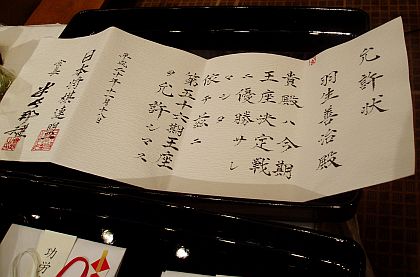 允許状
羽生善治殿
貴殿ハ今期
王座決定戦
ニ優勝サレ
マシタ
依テ茲ニ
第五十六期王座
ヲ允許シマス
平成二十年十一月十八日
日本将棋連盟
会長 米長邦雄
功労